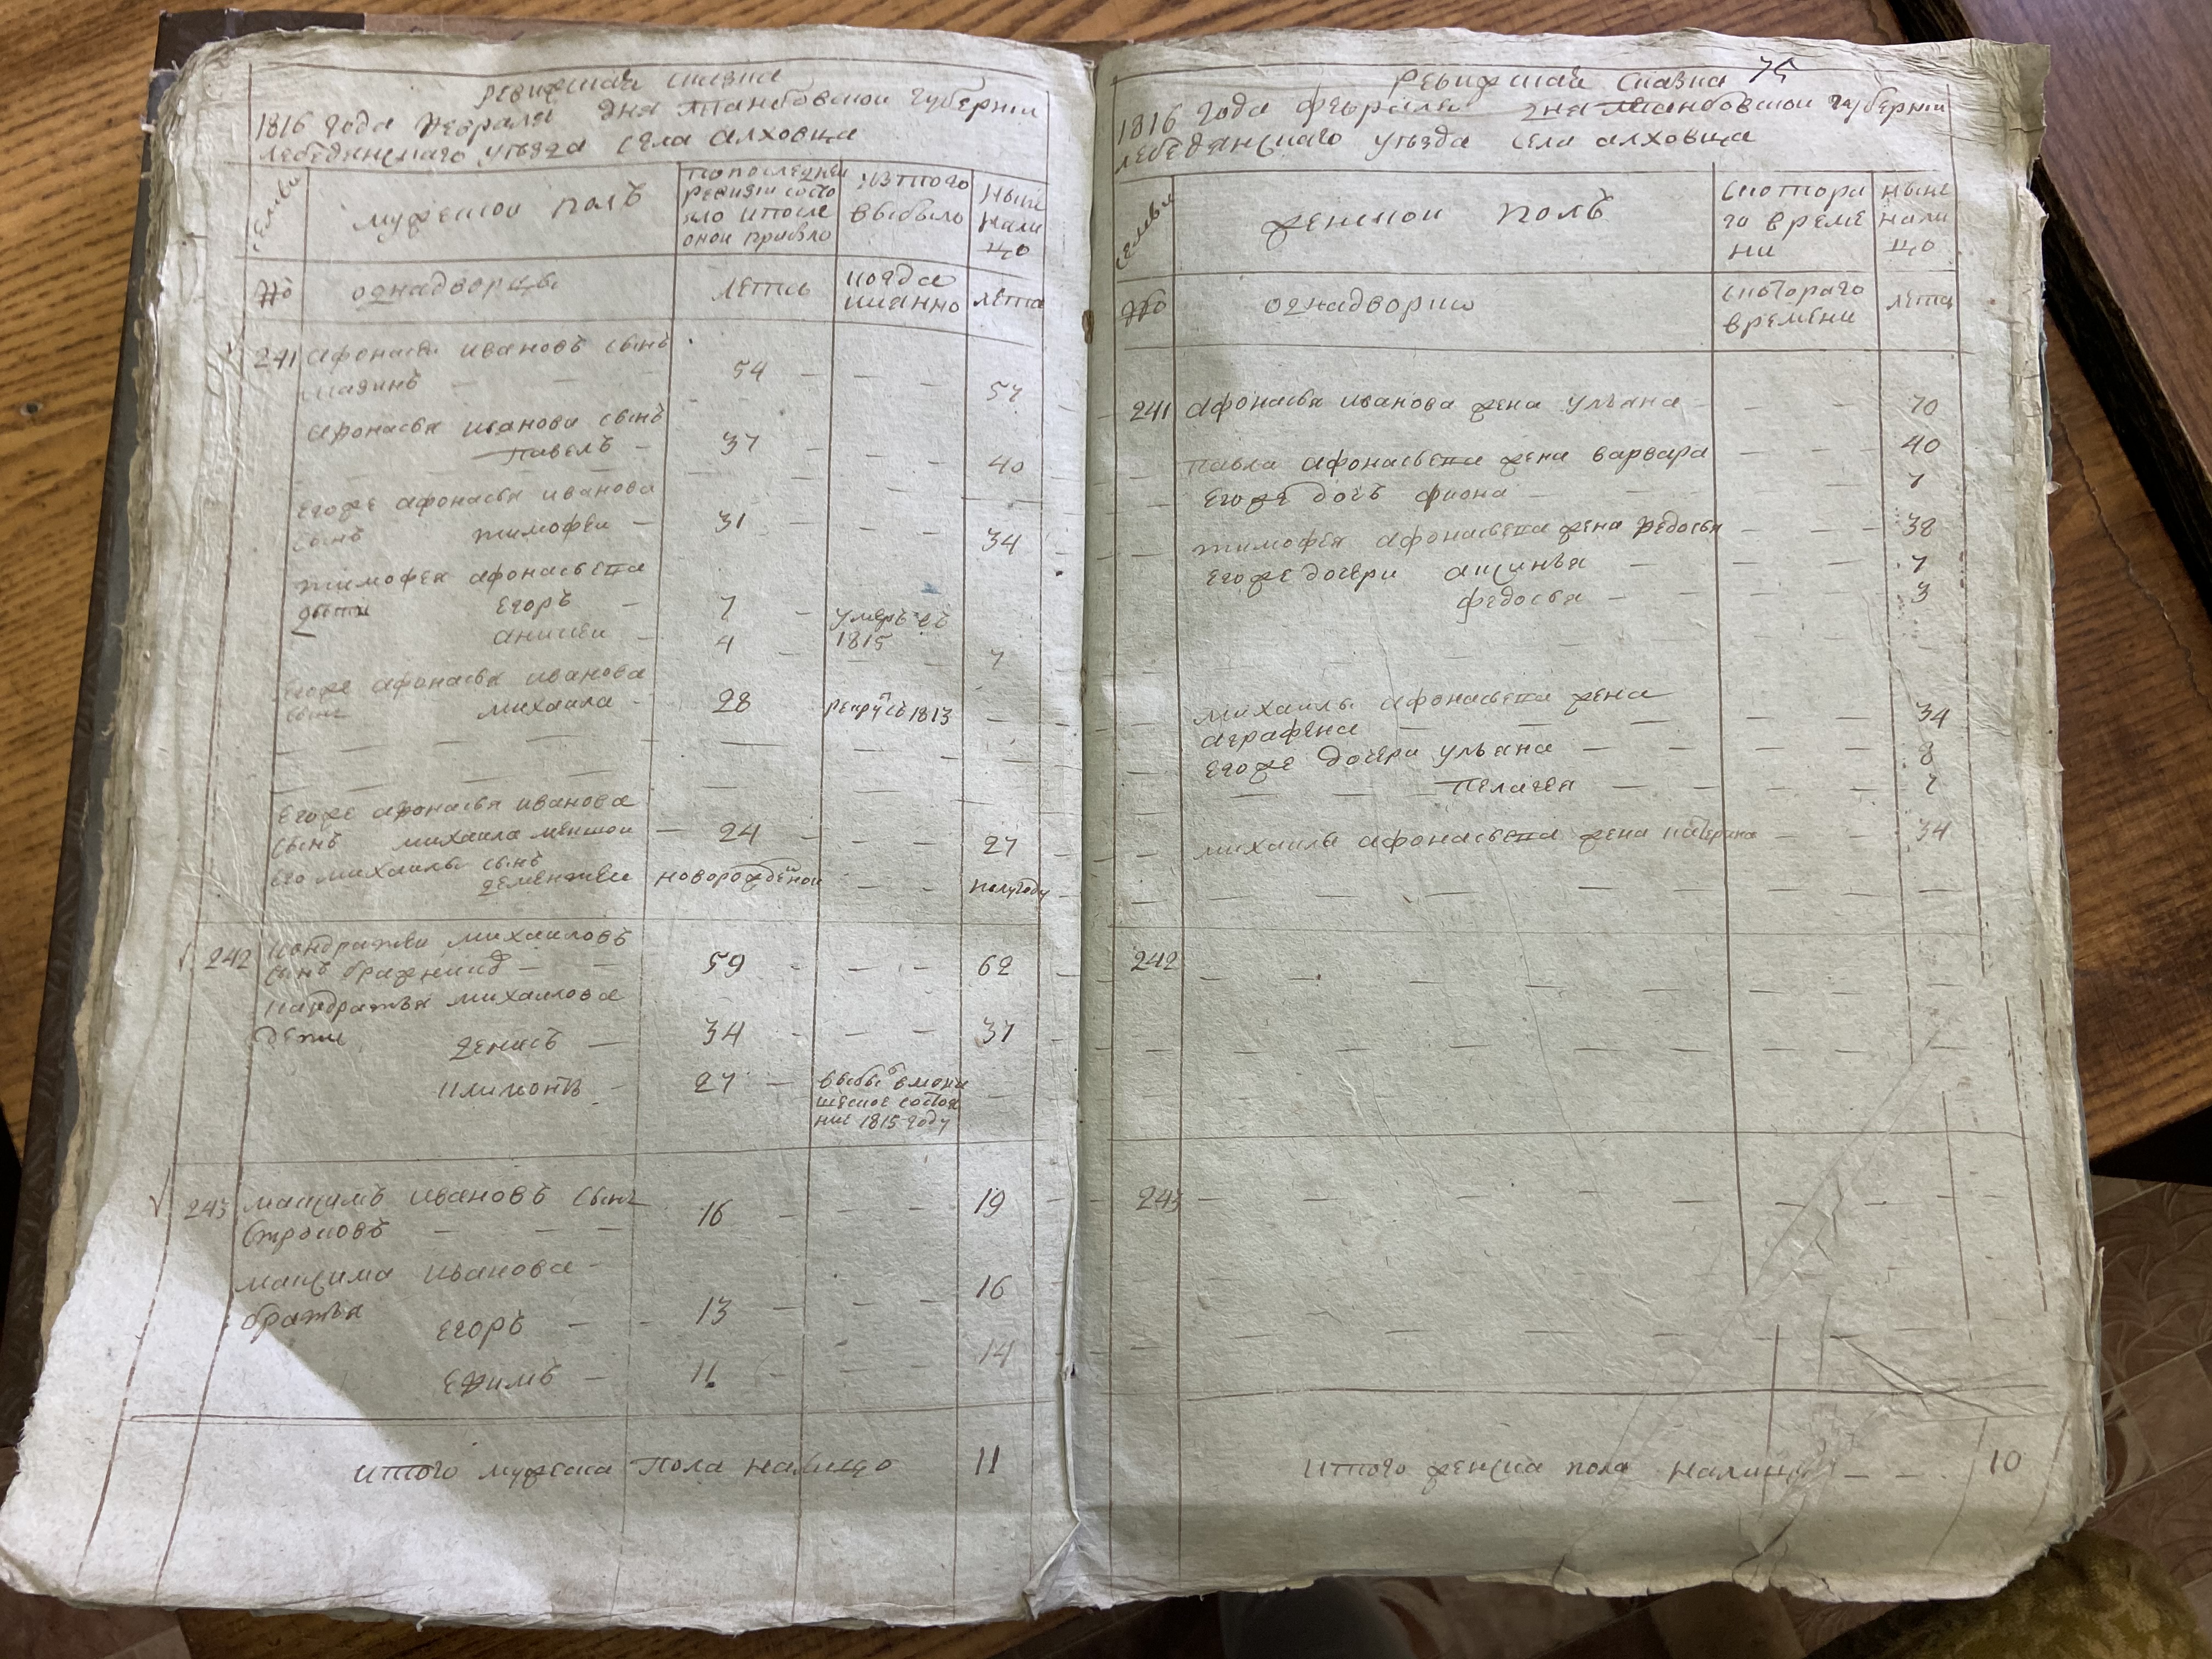 ревижская сказка
1816 года Февраля дня Танбовской губернии
лебедянскаго уезда села алховца
семьи
мужеской полъ
попоследней ревизии состояло ипосле оной прибыло
изтого выбыло
ныне налицо
№
однадворцы
лета
когда имянно
лета
241 Афонасей ивановъ сынъ
54 57
Афонасья иванова сынъ
павелъ 37 40
Егоже афонасья иванова
сынъ тимофеи 31 34
тимофея афонасьева
дети Егоръ 7 умеръ въ 1815
4 7
Егоже афонасья иванова
сынъ михаила 28 рекруты 1813
Егоже афонасья иванова
сынъ михаила меншои 24 27
его михаилы сынъ
дементеи новорожденои полугоду
242 кондратеи михаиловъ
сынъ 59 62
кандратья михаилова
дети денисъ 34 37
27 выбы вмона
шеское состоя
ние 1815 году
243 максимъ ивановъ сынъ
строковъ 16 19
максима иванова
братья Егоръ 13 16
Ефимъ 11 14
итого мужска пола налицо 11
75
ревижская сказка
1816 года февраля дня танбовской губернии
лебедянскаго уезда села алховца
семьи
женской полъ
скоторого времени
ныне налицо
№
однадворки
скотораго времени
лета
241 афонасья иванова жена ульяна 70
павла афонасьева жена варвара 40
Егоже дочь фиона 7
тимофея афонасьева жена федосья 38
Егоже дочери аксинья 7
федосья 3
михаилы афонасьева жена
аграфена 34
Егоже дочери ульяна 8
пелагея
михаилы афонасьева жена катерина 34
242
243
итого женска пола налицо 10